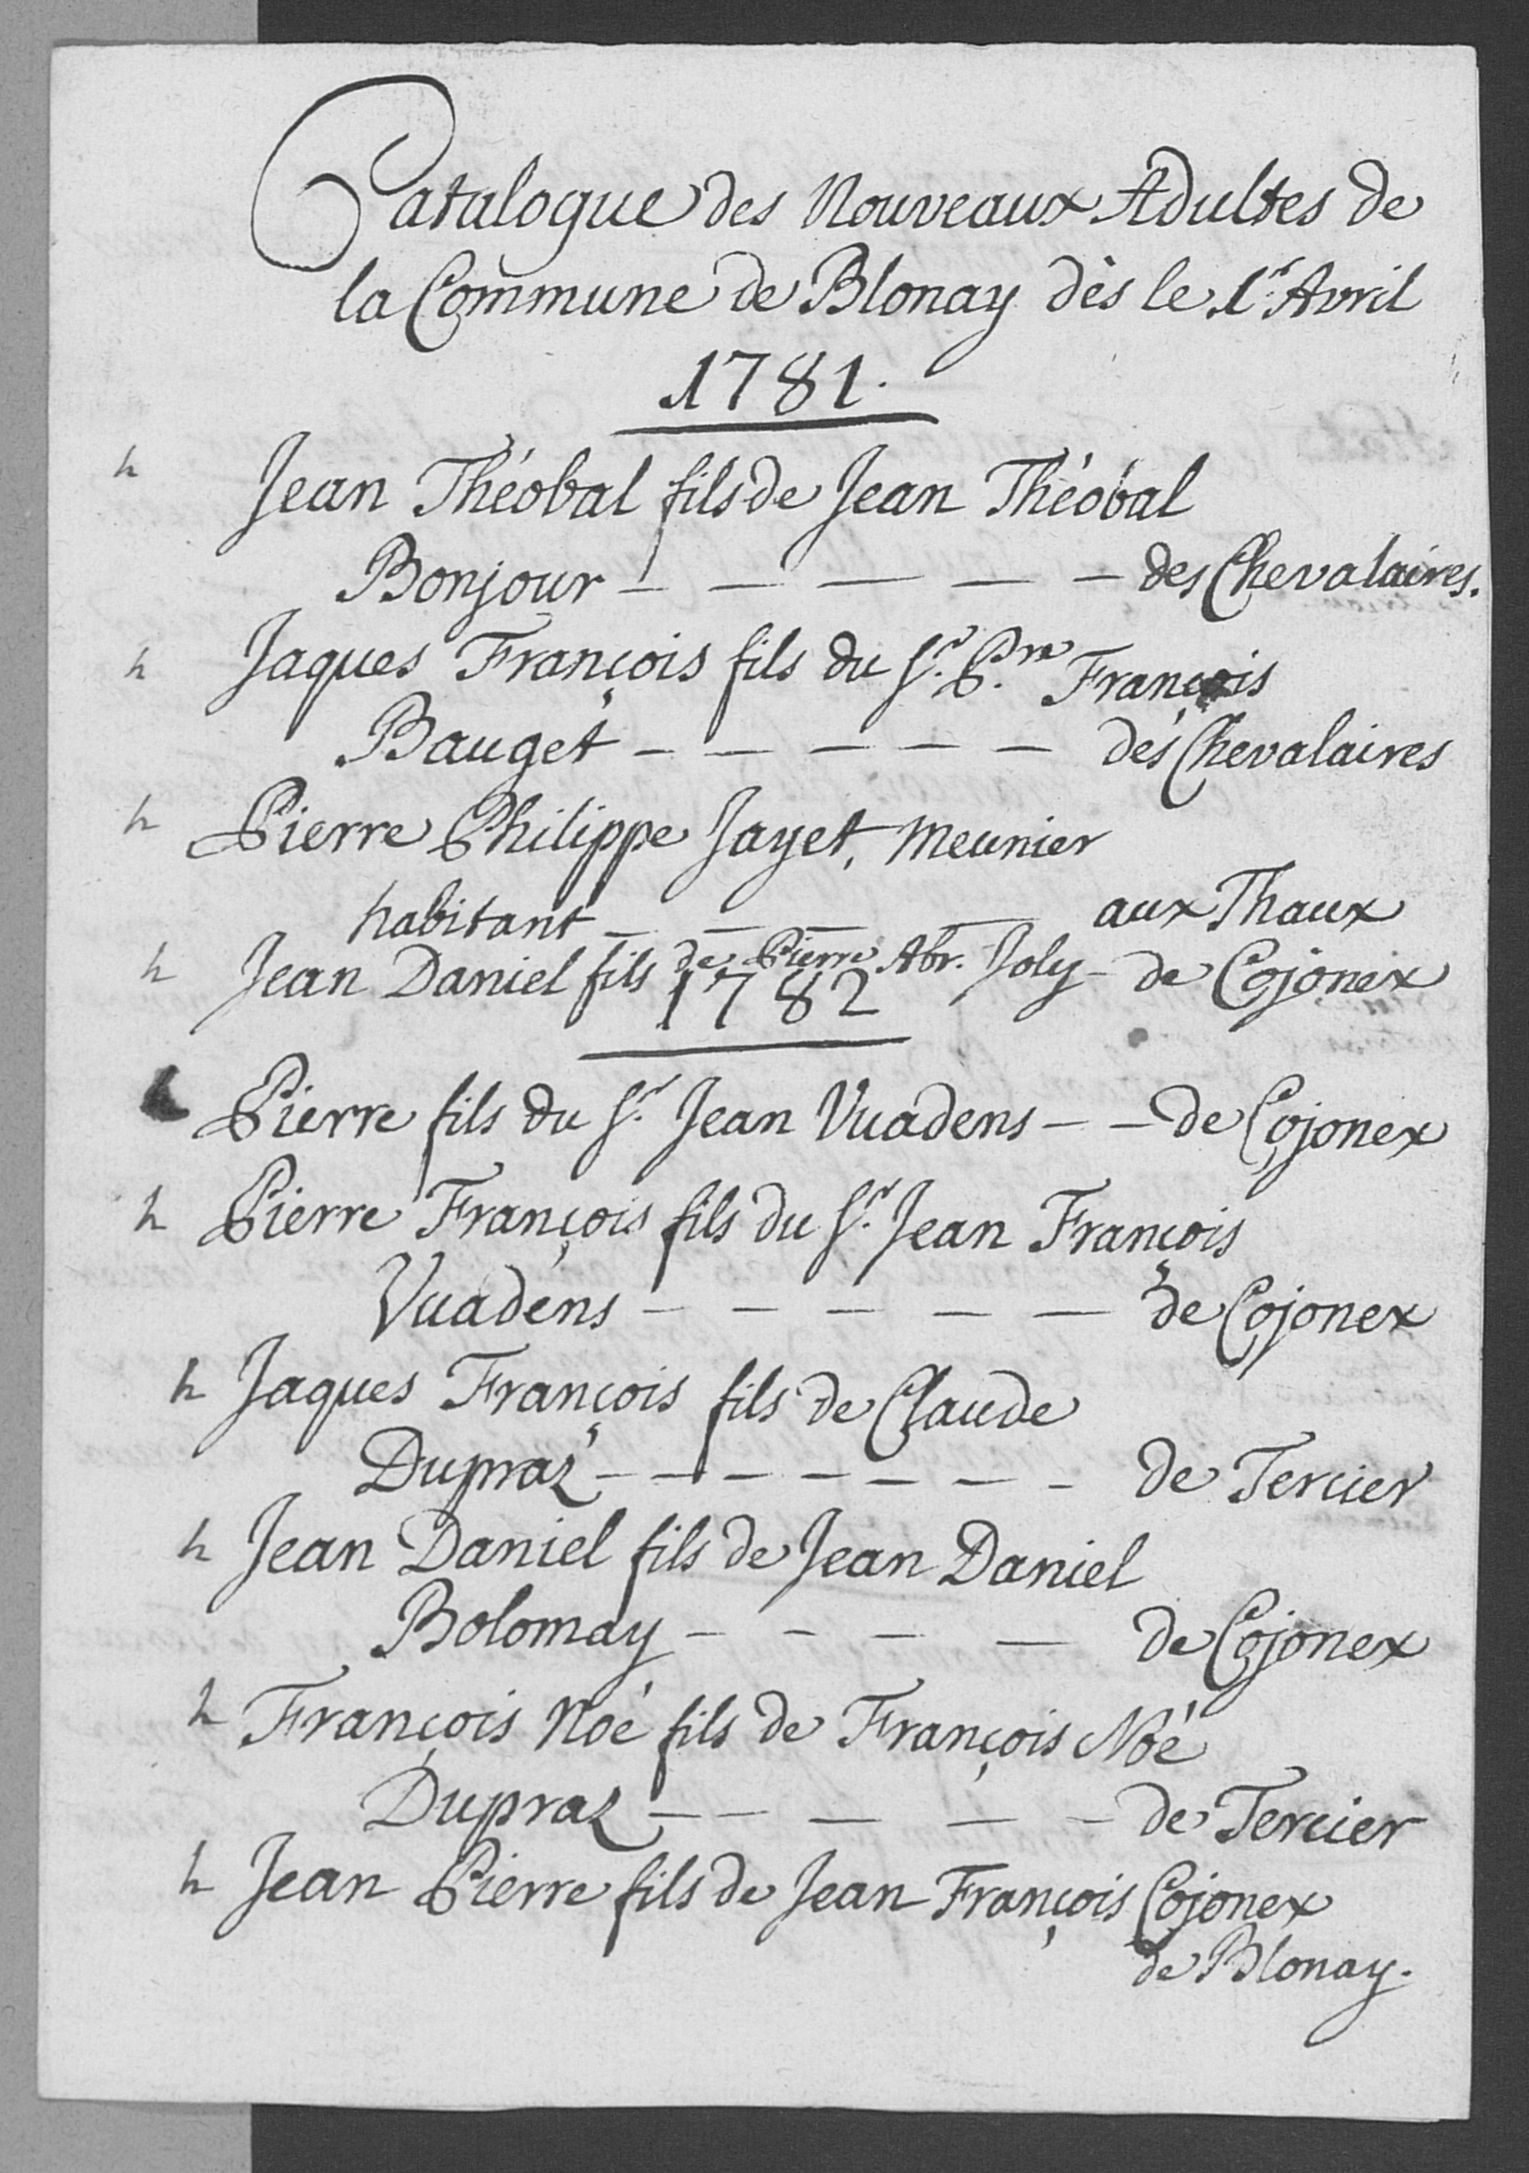 Catalogue des Nouveaux Adultes de
la Commune de Blonay dès le 1.r Avril
1781.
h Jean Théobal fils de Jean Théobal
Bonjour - - - - - des Chevalaires.
h Jaques François fils du S.r P.re François
Bauget - - - - - des Chevalaires
h Pierre Philippe Jayet, meunier
habitant - - - - aux Thaux
h Jean Daniel fils de Pierre Abr. Joly - de Cojonex
1782
h Pierre fils du S.r Jean Vuadens - - de Cojonex
h Pierre François fils du S.r Jean François
Vuadens - - - - - de Cojonex
h Jaques François fils de Claude
Dupraz - - - - - - - de Tercier
h Jean Daniel fils de Jean Daniel
Bolomay - - - - de Cojonex
h François Noé fils de François Noé
Dupraz - - - - - de Tercier
h Jean Pierre fils de Jean François Cojonex
de Blonay.